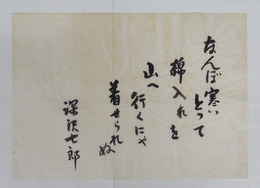 なんぼ寒い
とって
綿入れを
山へ
行くにや
着せられぬ
深沢七郎